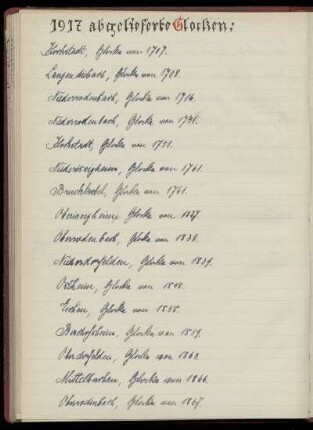 1917 abgelieferte Glocken:
Hochstadt, Glocke von 1707.
Langendiebach, Glocke von 1708.
Niederrodenbach, Glocke von 1716.
Niederrodenbach, Glocke von 1748.
Hochstadt, Glocke von 1751.
Niederissigheim, Glocke von 1761.
Bruchköbel, Glocke von 1761.
Oberissigheim Glocke von 1827.
Oberrodenbach, Glocke von 1838.
Niederdorfelden, Glocke von 1839.
Ostheim, Glocke von 1848.
Eichen, Glocke von 1858.
Bischofsheim, Glocke von 1859.
Oberdorfelden, Glocke von 1863.
Mittelbuchen, Glocke von 1866.
Oberrodenbach, Glocke von 1867.